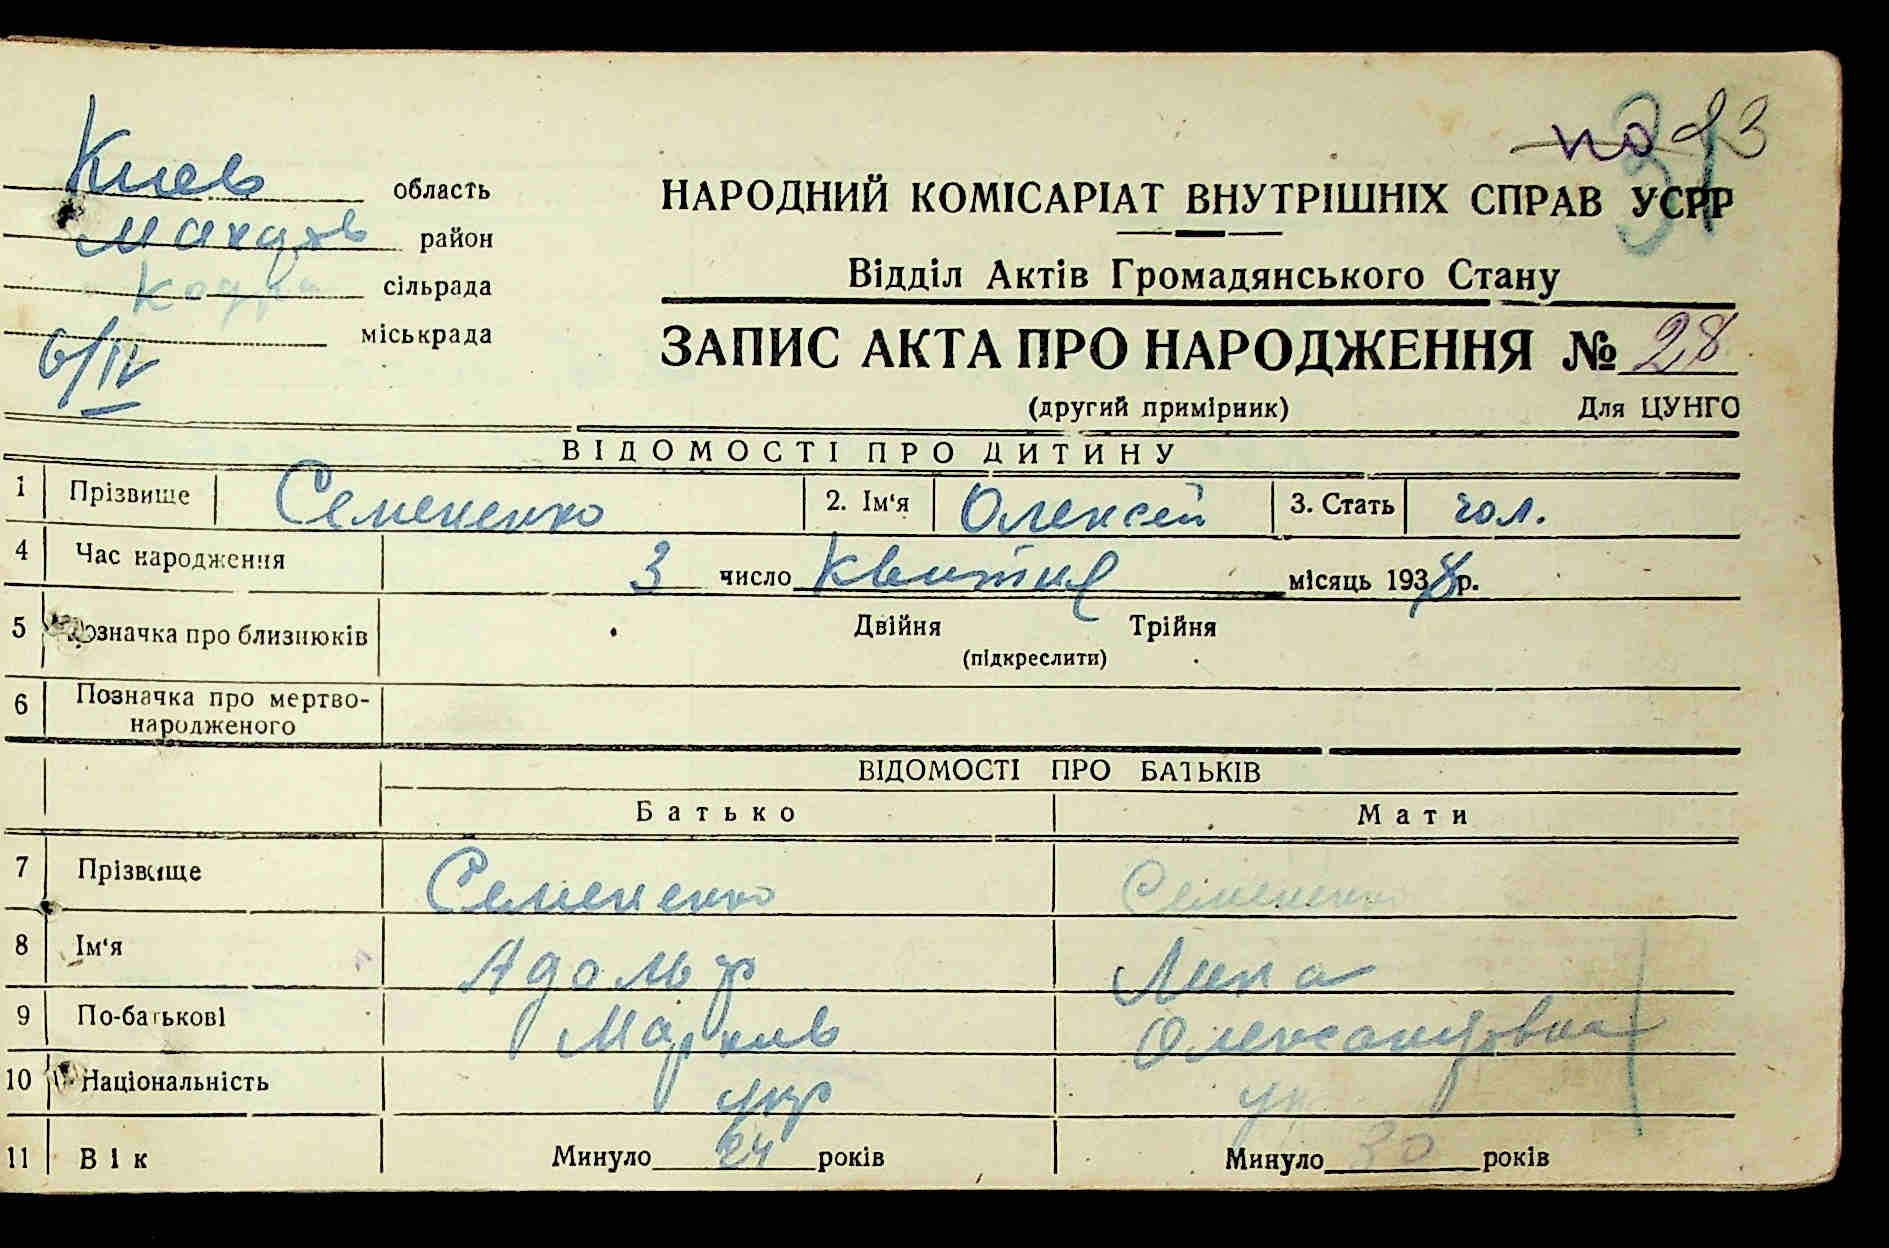 Киев область
Макарів район
Кодра сільрада
міськрада
6/IV
НАРОДНИЙ КОМІСАРІАТ ВНУТРІШНІХ СПРАВ УСРР
Відділ Актів Громадянського Стану
ЗАПИС АКТА ПРО НАРОДЖЕННЯ № 28
(другий примірник) Для ЦУНГО
ВІДОМОСТІ ПРО ДИТИНУ
1 Прізвище Семененко 2. Ім‘я Олексей 3. Стать чол.
4 Час народження 3 число Квитня місяць 1938 р.
5 Позначка про близнюків Двійня Трійня
(підкреслити)
6 Позначка про мертво-
народженого
ВІДОМОСТІ ПРО БАТЬКІВ
Батько Мати
7 Прізвище Семененко Семененко
8 Ім‘я Адольф
9 По-батькові Олександровна
10 Національність укр ук
11 Вік Минуло 24 років Минуло 30 років